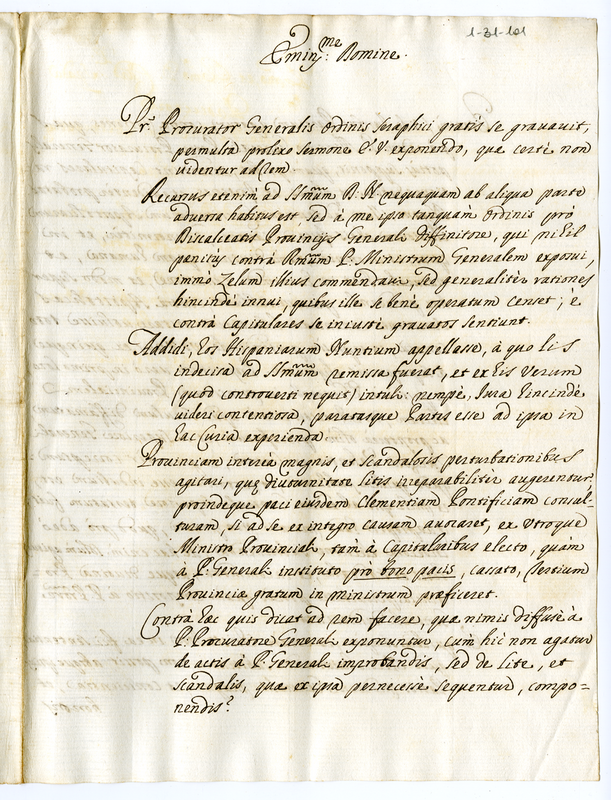 1-31-101
Emin.me Domine.
Pr. Procurator Generalis Ordinis Seraphici gratis se grauauit,
permulta prolixo sermone E. V. exponendo, quæ certè non
videntur ad rem.
Recursus etenim ad SSmum D. N. nequaquam ab aliqua parte
aduersa habitus est, sed à me ipso tanquam Ordinis prò
Discalceatis Prouincijs Generali Diffinitore, qui nihil
penitus contrà Rmum P. Ministrum Generalem exposui,
immò Zelum illius commendaui, sed generalitèr rationes
hincindè innui, quibus ille se benè operatum censet; e
contrà Capitulares se iniustè grauatos sentiunt.
Addidi, hos Hispaniarum Nuntium appellasse, à quo lis
indecisa ad SSmum remissa fuerat, et ex his verum
(quod controuerti nequit) intuli: nempè, Iura hincindè
videri contentiosa, paratasque Partes esse ad ipsa in
hac Curia experienda.
Prouinciam intereà magnis, et scandalosis perturbationibus
agitari, quę diuturnitate litis irreparabilitèr augerentur,
proindeque paci eiusdem Clementiam Pontificiam consul-
turam, si ad se ex integro causam auocaret, ex vtroque
Ministro Prouinciali, tàm à Capitularibus electo, quàm
à P. Generali instituto prò bono pacis, cassato, tertium
Prouinciæ gratum in ministrum præficeret.
Contrà hæc quis dicat ad rem facere, quæ nimis diffusè à
P. Procuratore Generali exponuntur, cùm hìc non agatur
de actis à P. Generali improbandis, sed de lite, et
scandalis, quæ ex ipsa pernecessè sequentur, compo=
nendis?